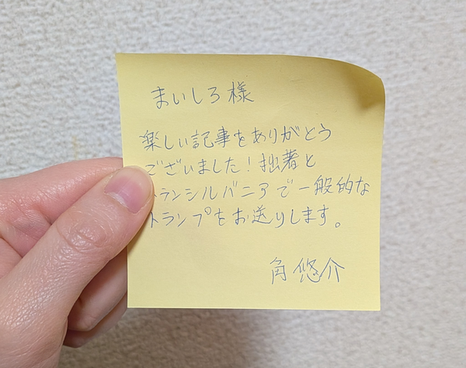 まいしろ様
楽しい記事をありがとう
ございました！拙著と
トランシルバニアで一般的な
トランプをお送りします。
角悠介